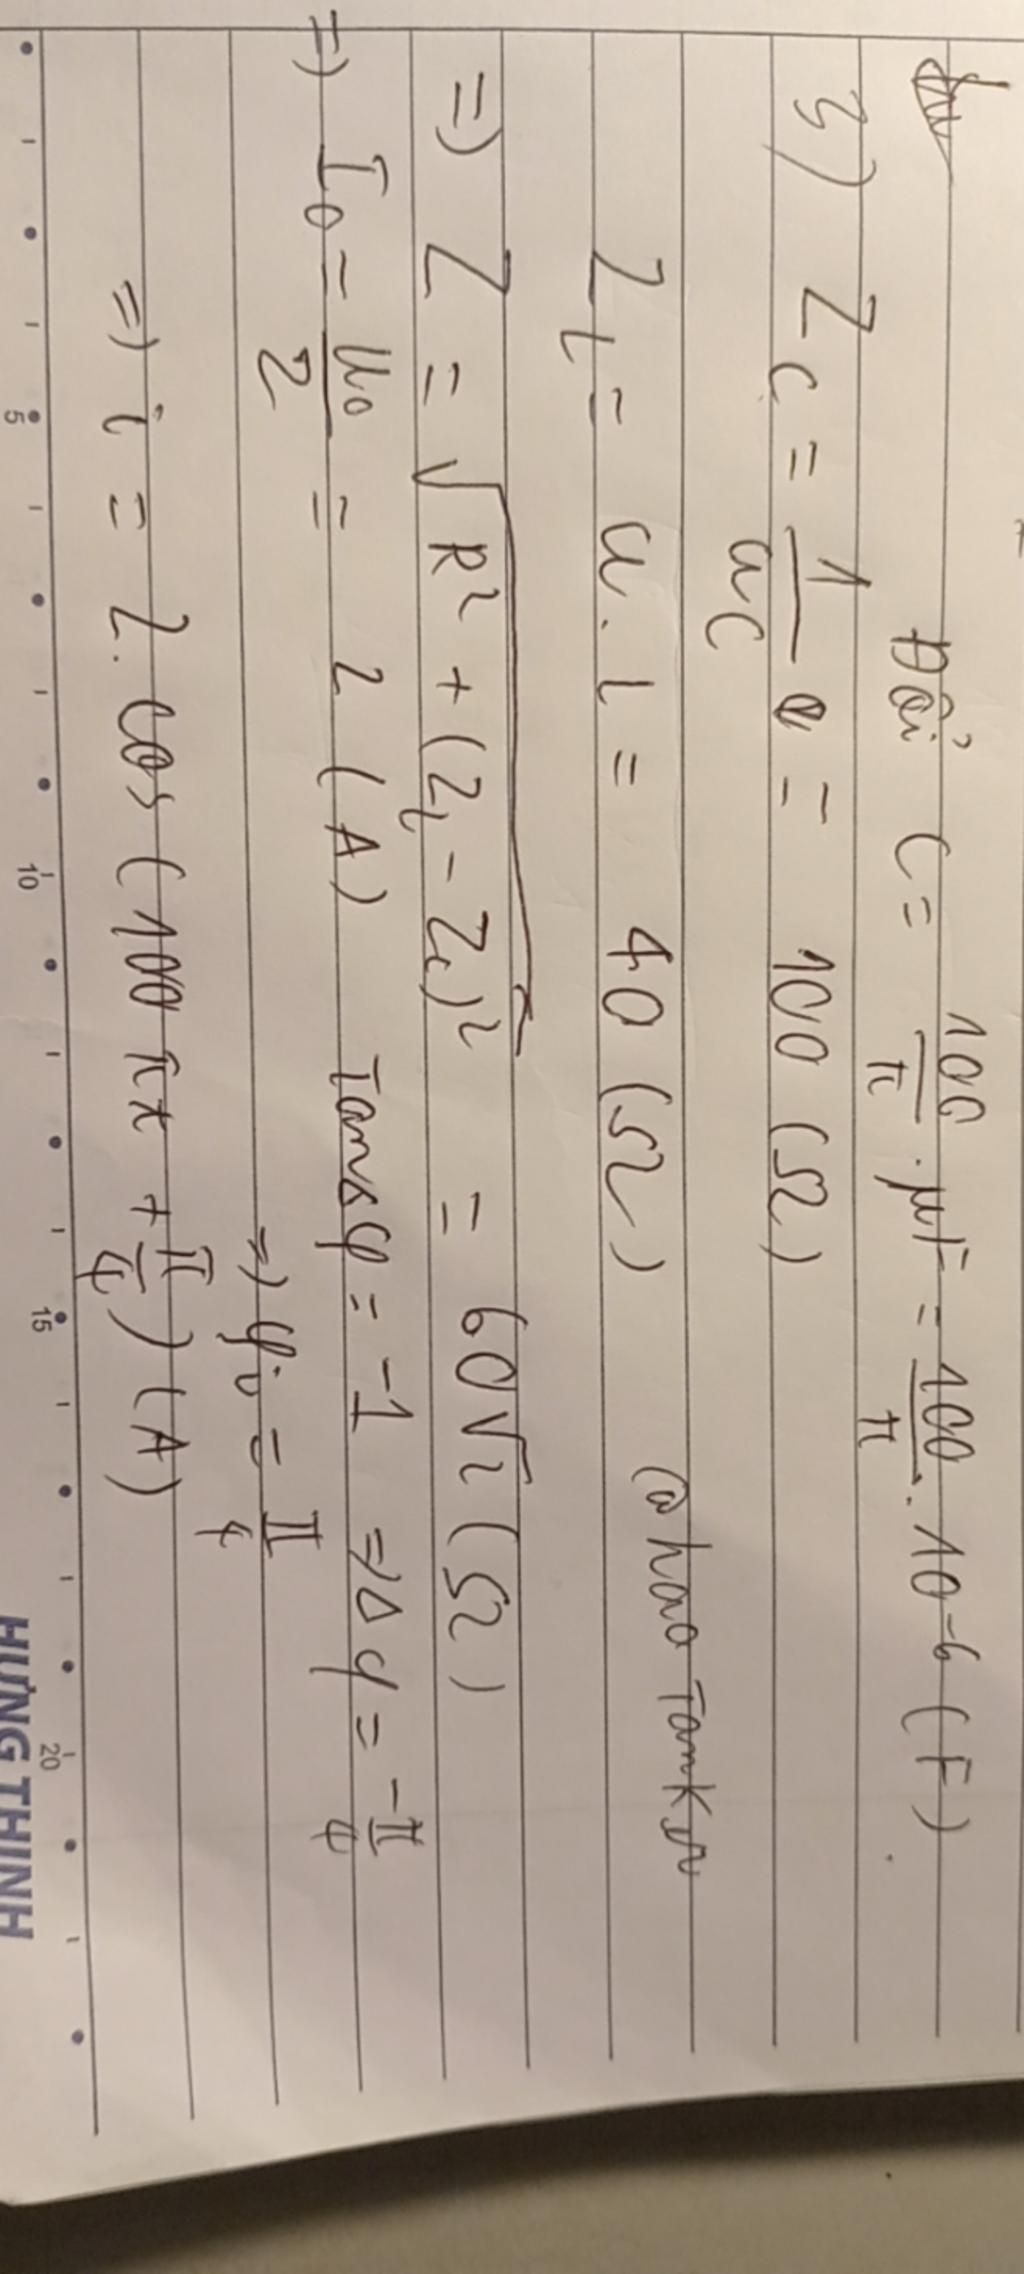 Đổi C = 100/π . µF = 100/π . 10^-6 (F)
3) Z_C = 1/ωC = 100 (Ω)
Z_L = ω . L = 40 (Ω)
@haotankan
=) Z = √(R² + (Z_L - Z_C)²) = 60√2 (Ω)
=) I_0 = U_0/Z = 2 (A) Tan φ = -1 => Δφ = -π/4
=) φ_i = π/4
=) i = 2. cos (100πt + π/4) (A)
5 10 15 20
HƯNG THỊNH